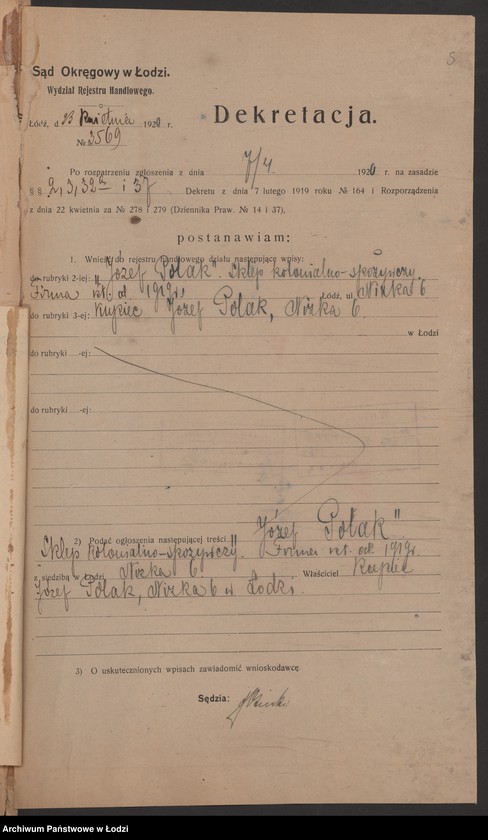 5
Sąd Okręgowy w Łodzi.
Wydział Rejestru Handlowego.
Łódź, d. 23 kwietnia 1920 r.
№ 3569
Dekretacja.
Po rozpatrzeniu zgłoszenia z dnia 7/4. 1920 r. na zasadzie
§ § 2, 3, 32 i 37 Dekretu z dnia 7 lutego 1919 roku № 164 i Rozporządzenia
z dnia 22 kwietnia za № 278 i 279 (Dziennika Praw. № 14 i 37),
postanawiam:
1. Wnieść do rejestru handlowego działu następujące wpisy:
do rubryki 2-iej: "Józef Polak". Sklep kolonialno-spożywczy.
Firma istn. od 1919 r. Łódź, ul. Nizka 6
do rubryki 3-ej: Kupiec Józef Polak, Nizka 6.
w Łodzi
do rubryki -ej:
do rubryki -ej:
2) Podać ogłoszenia następującej treści: "Józef Polak"
Sklep kolonialno-spożywczy. Firma ist. od 1919 r.
z siedzibą w Łodzi, Nizka 6. Właściciel Kupiec
Józef Polak, Nizka 6 w Łodzi.
3) O uskutecznionych wpisach zawiadomić wnioskodawcę.
Sędzia:
Archiwum Państwowe w Łodzi